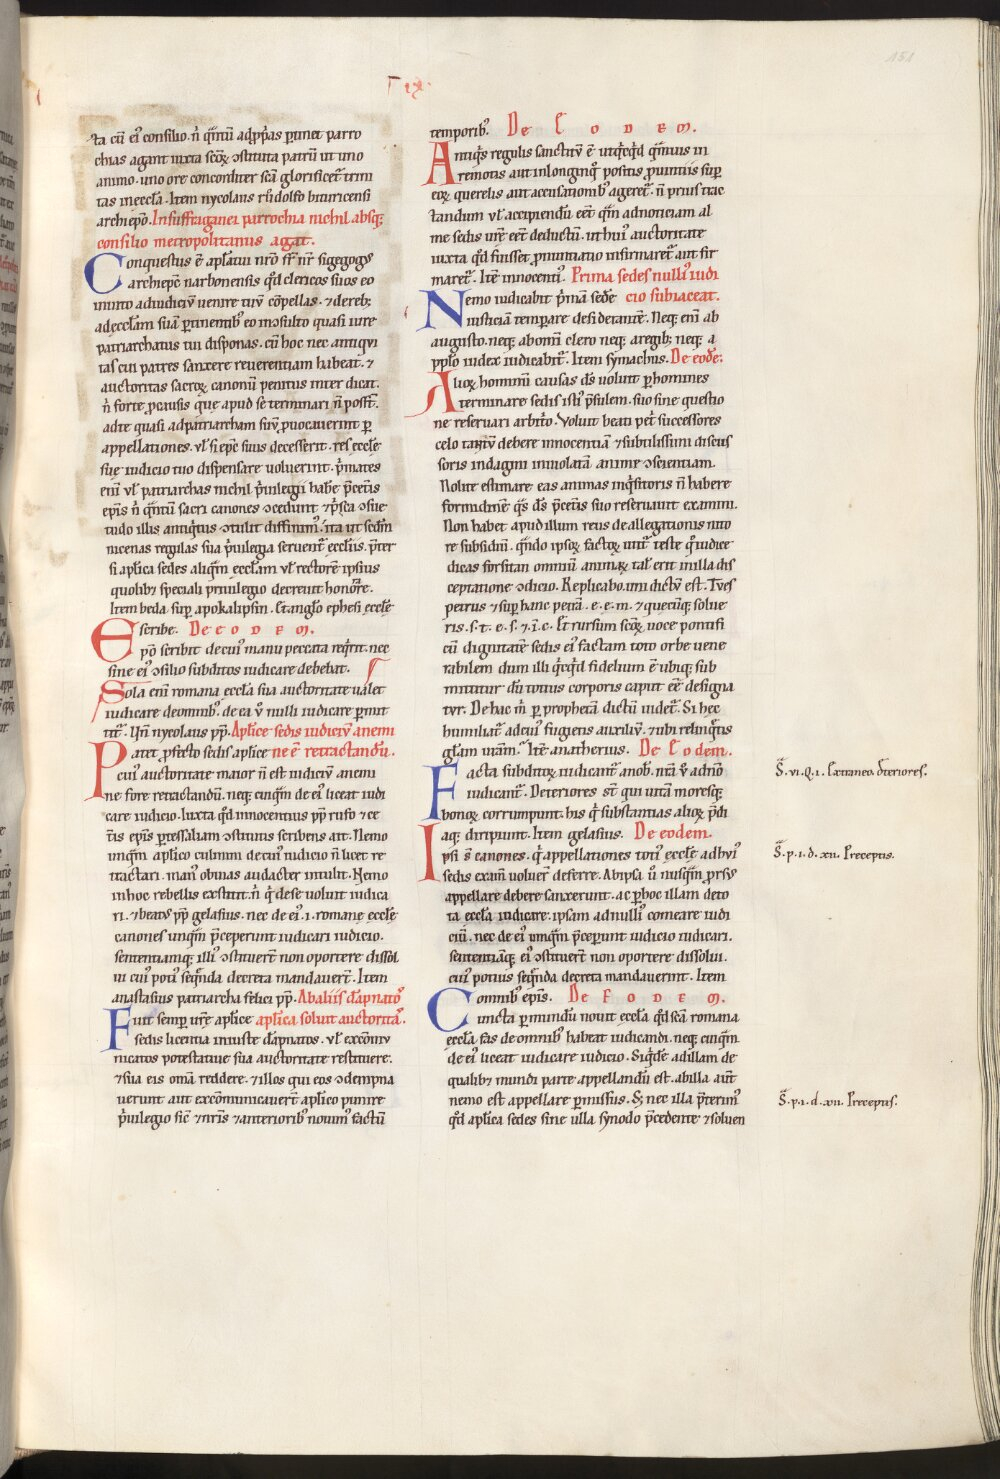 151
ta cū ei᷒ consilio. n̄ q̄ntū adp̄p̄as ꝑtinet parro
chias agant iuxta scōꝝ ɔstituta patrū ut uno
animo. uno ore concorditer scā glorificet᷑ trini
tas ineccłā. Item nycolaus rodolfo bituricensi
archiepō. Insuffraganei parrochia nichil absqꝫ
consilio metropolitanus agat.
Conquestus ē apłatui nr̄o fr̄ nr̄ sigegogꝰ
archiepc̄ narbonensis qd̄ clericos suos eo
inuito adiudiciū venire tuū cōpellas. ⁊ derebꝫ
adeccłam suā ꝑtinentibꝰ eo incōsulto quasi iure
patriarchatus tui disponas. cū hoc nec antiqui
tas cui patres sanxere reuerentiam habeat. ⁊
auctoritas sacroꝝ canonū penitus inter dicat.
n̄ forte ꝓcausis que apud se terminari n̄ possꝫ.
adte quasi adpatriarcham suū ꝓuocauerint ꝑ
appellationes. uł si epc̄ suus decesserit. res eccłe
sue iudicio tuo dispensare voluerint. p̄mates
eni uł patriarchas nichil p̄uilegii habe p̄cet̄is
epīs n̄ q̄ntū sacri canones ɔcedunt ⁊p̄sca ɔsue
tudo illis antiq̇tus ɔtulit diffinim᷒. ita ut sed̄m
nicenas regulas sua p̄uilegia seruent᷑ eccłiis. p̄ter
si aplica sedes aliq̄m eccłam uł rectorē ipsius
quolibꝫ speciali priuilegio decreuit honōre.
Item beda suꝑ apokalipsin. Et angło ephesi eccłe
scribe. De eodem.
Epō scribit decui᷒ manu peccata req̇rit. nec
sine ei᷒ ɔsilio subditos iudicare debebat.
Sola eni romana eccła sua auctoritate ualet
iudicare deomnibꝰ. de ea v̊ nulli iudicare ꝑmit
tit᷑. Un̄ nycolaus pp̄. Aplice sedis iudiciū anemi
Patet ꝓfecto sedis aplice ne ē retractandū.
cui᷒ auctoritate maior n̄ est iudiciū anemi
ne fore retractandū. neqꝫ cuiq̄m de ei᷒ liceat iudi
care iudicio. Iuxta qd̄ innocentius pp̄ rufo ⁊ ce
t̄is epīs ꝑtessaliam ɔstitutis scribens ait. Nemo
unq̄m aplico culmini decui᷒ iudicio n̄ licet re
tractari. man᷒ obuias audacter intulit. Nemo
inhoc rebellis exstitit. n̄ q̇ dese voluit iudica
ri. ⁊beatꝰ pp̄ gelasius. nec de ei᷒. i. romane eccłe
canones unq̄m p̄ceperunt iudicari iudicio.
sententiamqꝫ illi᷒ ɔstituert̄ non oportere dissol
ui cui᷒ poti᷒ seq̄nda decreta mandauert̄. Item
anastasius patriarcha felici pp̄. Abaliis dāpnatoꝰ
Fuit semꝑ ur̄e aplice aplica soluit auctoritaꝰ.
sedis licentia iniuste dāpnatos. uł excōmu
nicatos potestatiue sua auctoritate restituere.
⁊sua eis omīa reddere. ⁊illos qui eos ɔdempna
uerunt aut excōmunicauert̄ aplico punire
p̄uilegio sic̄ ⁊nr̄is ⁊anterioribꝰ nouim᷒ factū
temporibꝰ. De Eodem.
Antiq̇s regulis sanctitū ē ut q̇cqd̄ q̄muis in
remotis aut inlonginq̊ positis ꝓuinciis suꝑ
eoꝝ querelis aut accusationibꝰ ageret᷑. n̄ prius trac
tandum uł accipiendū eēt q̄m adnoticiam al
me sedis ur̄e eēt deductū. ut hui᷒ auctoritate
iuxta qd̄ fuisset ꝓnuntiatio infirmaret᷑ aut fir
maret᷑. Itē innocenti᷒. Prima sedes nulli᷒ iudi
Nemo iudicabit p̄mā sedē cio subiaceat.
iusticiā temꝑare desiderantē. Neqꝫ eni ab
augusto. neqꝫ abomi clero neqꝫ aregibꝫ neqꝫ a
ppło iudex iudicabit᷑. Item symachus. De eodē.
Alioꝝ hominū causas d̄s voluit ꝑhomines
terminare sedis isti᷒ p̄sulem. suo sine questio
ne reseruari arbit̊o. Voluit beati pet̊ successores
celo tantū debere innocentiā ⁊subtilissimi discus
soris indagini inuiolatā anime ɔscientiam.
Nolite estimare eas animas inq̇sitoris n̄ habere
formidinē q̇s d̄s p̄cet̄is suo reseruauit examini.
Non habet apud illum reus de allegationis nito
re subsidiū. q̄ndo ipsoꝝ factoꝝ utit᷑ teste q̊ iudice
dicas forsitan omniū animaꝝ tal᷑ erit in illa dis
ceptatione ɔdicio. Replicabo. uni dictū est. Tu es
petrus ⁊ suꝑ hanc petrā. e. e. m. ⁊ quecūqꝫ solue
ris. s. t. e. s. ⁊. ī. c. Et rursum scōꝝ uoce pontifi
cū dignitatē sedis ei᷒ factam toto orbe vene
rabilem dum illi q̇cqd̄ fidelium ē ubiqꝫ sub
mittitur dū totius corporis caput eē designa
tur. De hac m̄ ꝑ prophetā dictū uidet᷑. Si hec
humiliat᷑ adcui᷒ fugietis auxiliū. ⁊ubi relinq̇tis
głam urām.᷑ Itē anatherius. De Eodem.
Facta subditoꝝ iudicant᷑ anob. nr̄a v̊ adn̄o
iudicant᷑. Deteriores st̄ qui uitā moresqꝫ
bonoꝝ corrumpunt. his q̇ substantias alioꝝ p̄di
aqꝫ diripiunt. Item gelasius. De eodem.
Ipsi s̄ canones. q̇ appellationes toti᷒ eccłe adhui᷒
sedis exam̄ voluer̄ deferre. Ab ipsa ū nusq̄m ꝓrsꝰ
appellare debere sanxerunt. ac ꝑhoc illam deto
ta eccła iudicare. ipsam adnulli᷒ comeare iudi
ciū. nec de ei᷒ umq̄m p̄ceperunt iudicio iudicari.
sententiāqꝫ ei᷒ ɔstituert̄ non oportere dissolui.
cui᷒ potius seq̄nda decreta mandauerint. Item
omnibꝰ epīs. De Eodem.
Cuncta ꝑmundū nouit eccła qd̄ scā romana
eccła fas de omnibꝰ habeat iudicandi. neqꝫ cuiq̄m
de ei᷒ liceat iudicare iudicio. Siq̇de adillam de
qualibꝫ mundi parte appellandū est. abilla aūt
nemo est appellare ꝑmissus. Sꝫ nec illa p̄terim᷒
qd̄ aplica sedes sine ulla synodo p̄cedente ⁊soluen
S̄. vi. Q. i. Ex merito dteriores.
S̄. p. i. d. xii. Preceptis.
S̄. p. i. d. xii. Preceptis.